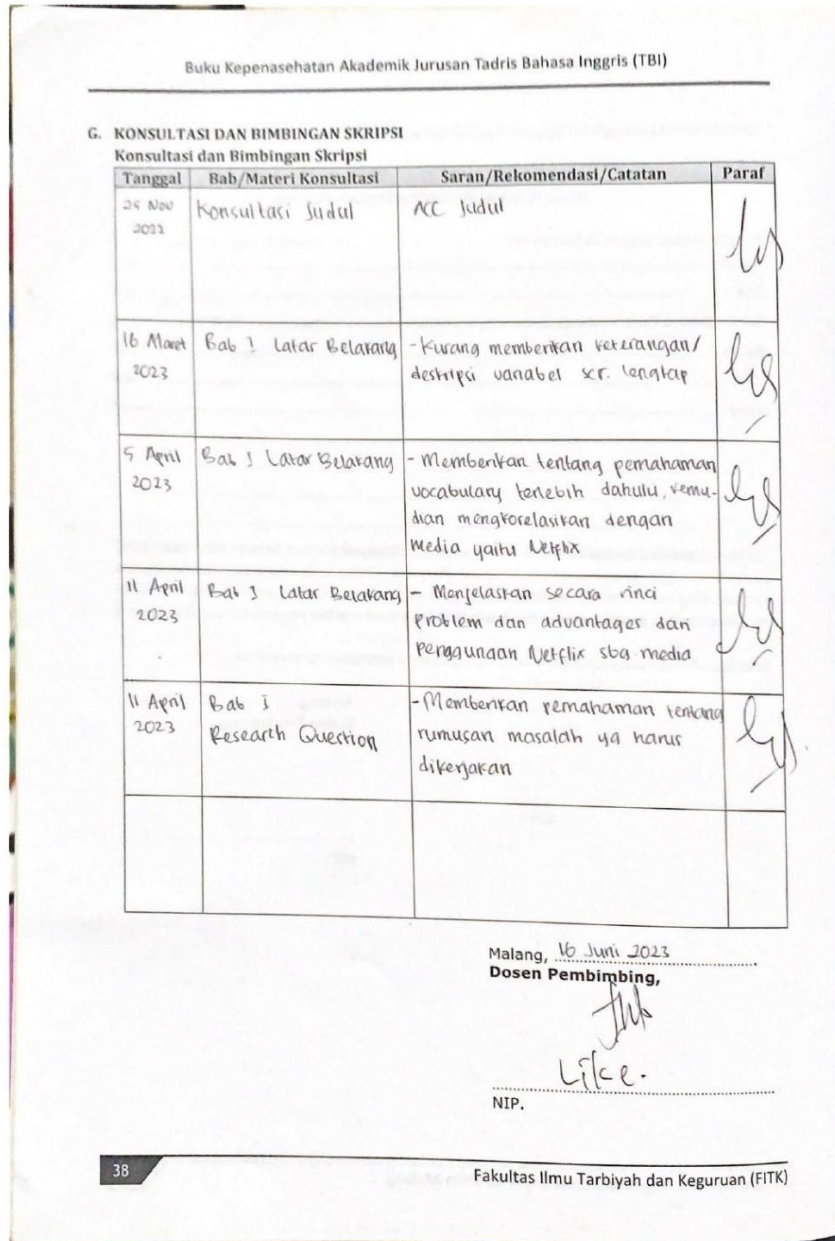 Buku Kepenasehatan Akademik Jurusan Tadris Bahasa Inggris (TBI)
G. KONSULTASI DAN BIMBINGAN SKRIPSI
Konsultasi dan Bimbingan Skripsi
Tanggal Bab/Materi Konsultasi Saran/Rekomendasi/Catatan Paraf
25 Nov
2022
Konsultasi Judul
ACC Judul
16 Maret
2023
Bab I Latar Belakang
- Kurang memberikan keterangan/
deskripsi variabel scr. lengkap
5 April
2023
Bab I Latar Belakang
- Memberikan tentang pemahaman
vocabulary terlebih dahulu, kemu-
dian mengkorelasikan dengan
media yaitu Netflix
11 April
2023
Bab I Latar Belakang
- Menjelaskan secara rinci
problem dan advantages dari
penggunaan Netflix sbg media
11 April
2023
Bab I
Research Question
- Memberikan pemahaman tentang
rumusan masalah yg harus
dikerjakan
Malang, 16 Juni 2023
Dosen Pembimbing,
Like.
NIP.
38
Fakultas Ilmu Tarbiyah dan Keguruan (FITK)